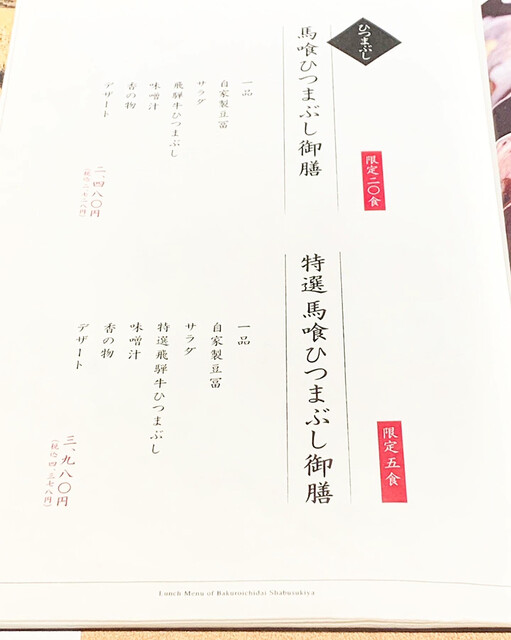 ひつまぶし
限定二〇食
馬喰ひつまぶし御膳
一品
自家製豆冨
サラダ
飛騨牛ひつまぶし
味噌汁
香の物
デザート
二、四八〇円
(税込二、七二八円)
限定五食
特選 馬喰ひつまぶし御膳
一品
自家製豆冨
サラダ
特選飛騨牛ひつまぶし
味噌汁
香の物
デザート
三、九八〇円
(税込四、三七八円)
Lunch Menu of Bakuroichidai Shabusukiya